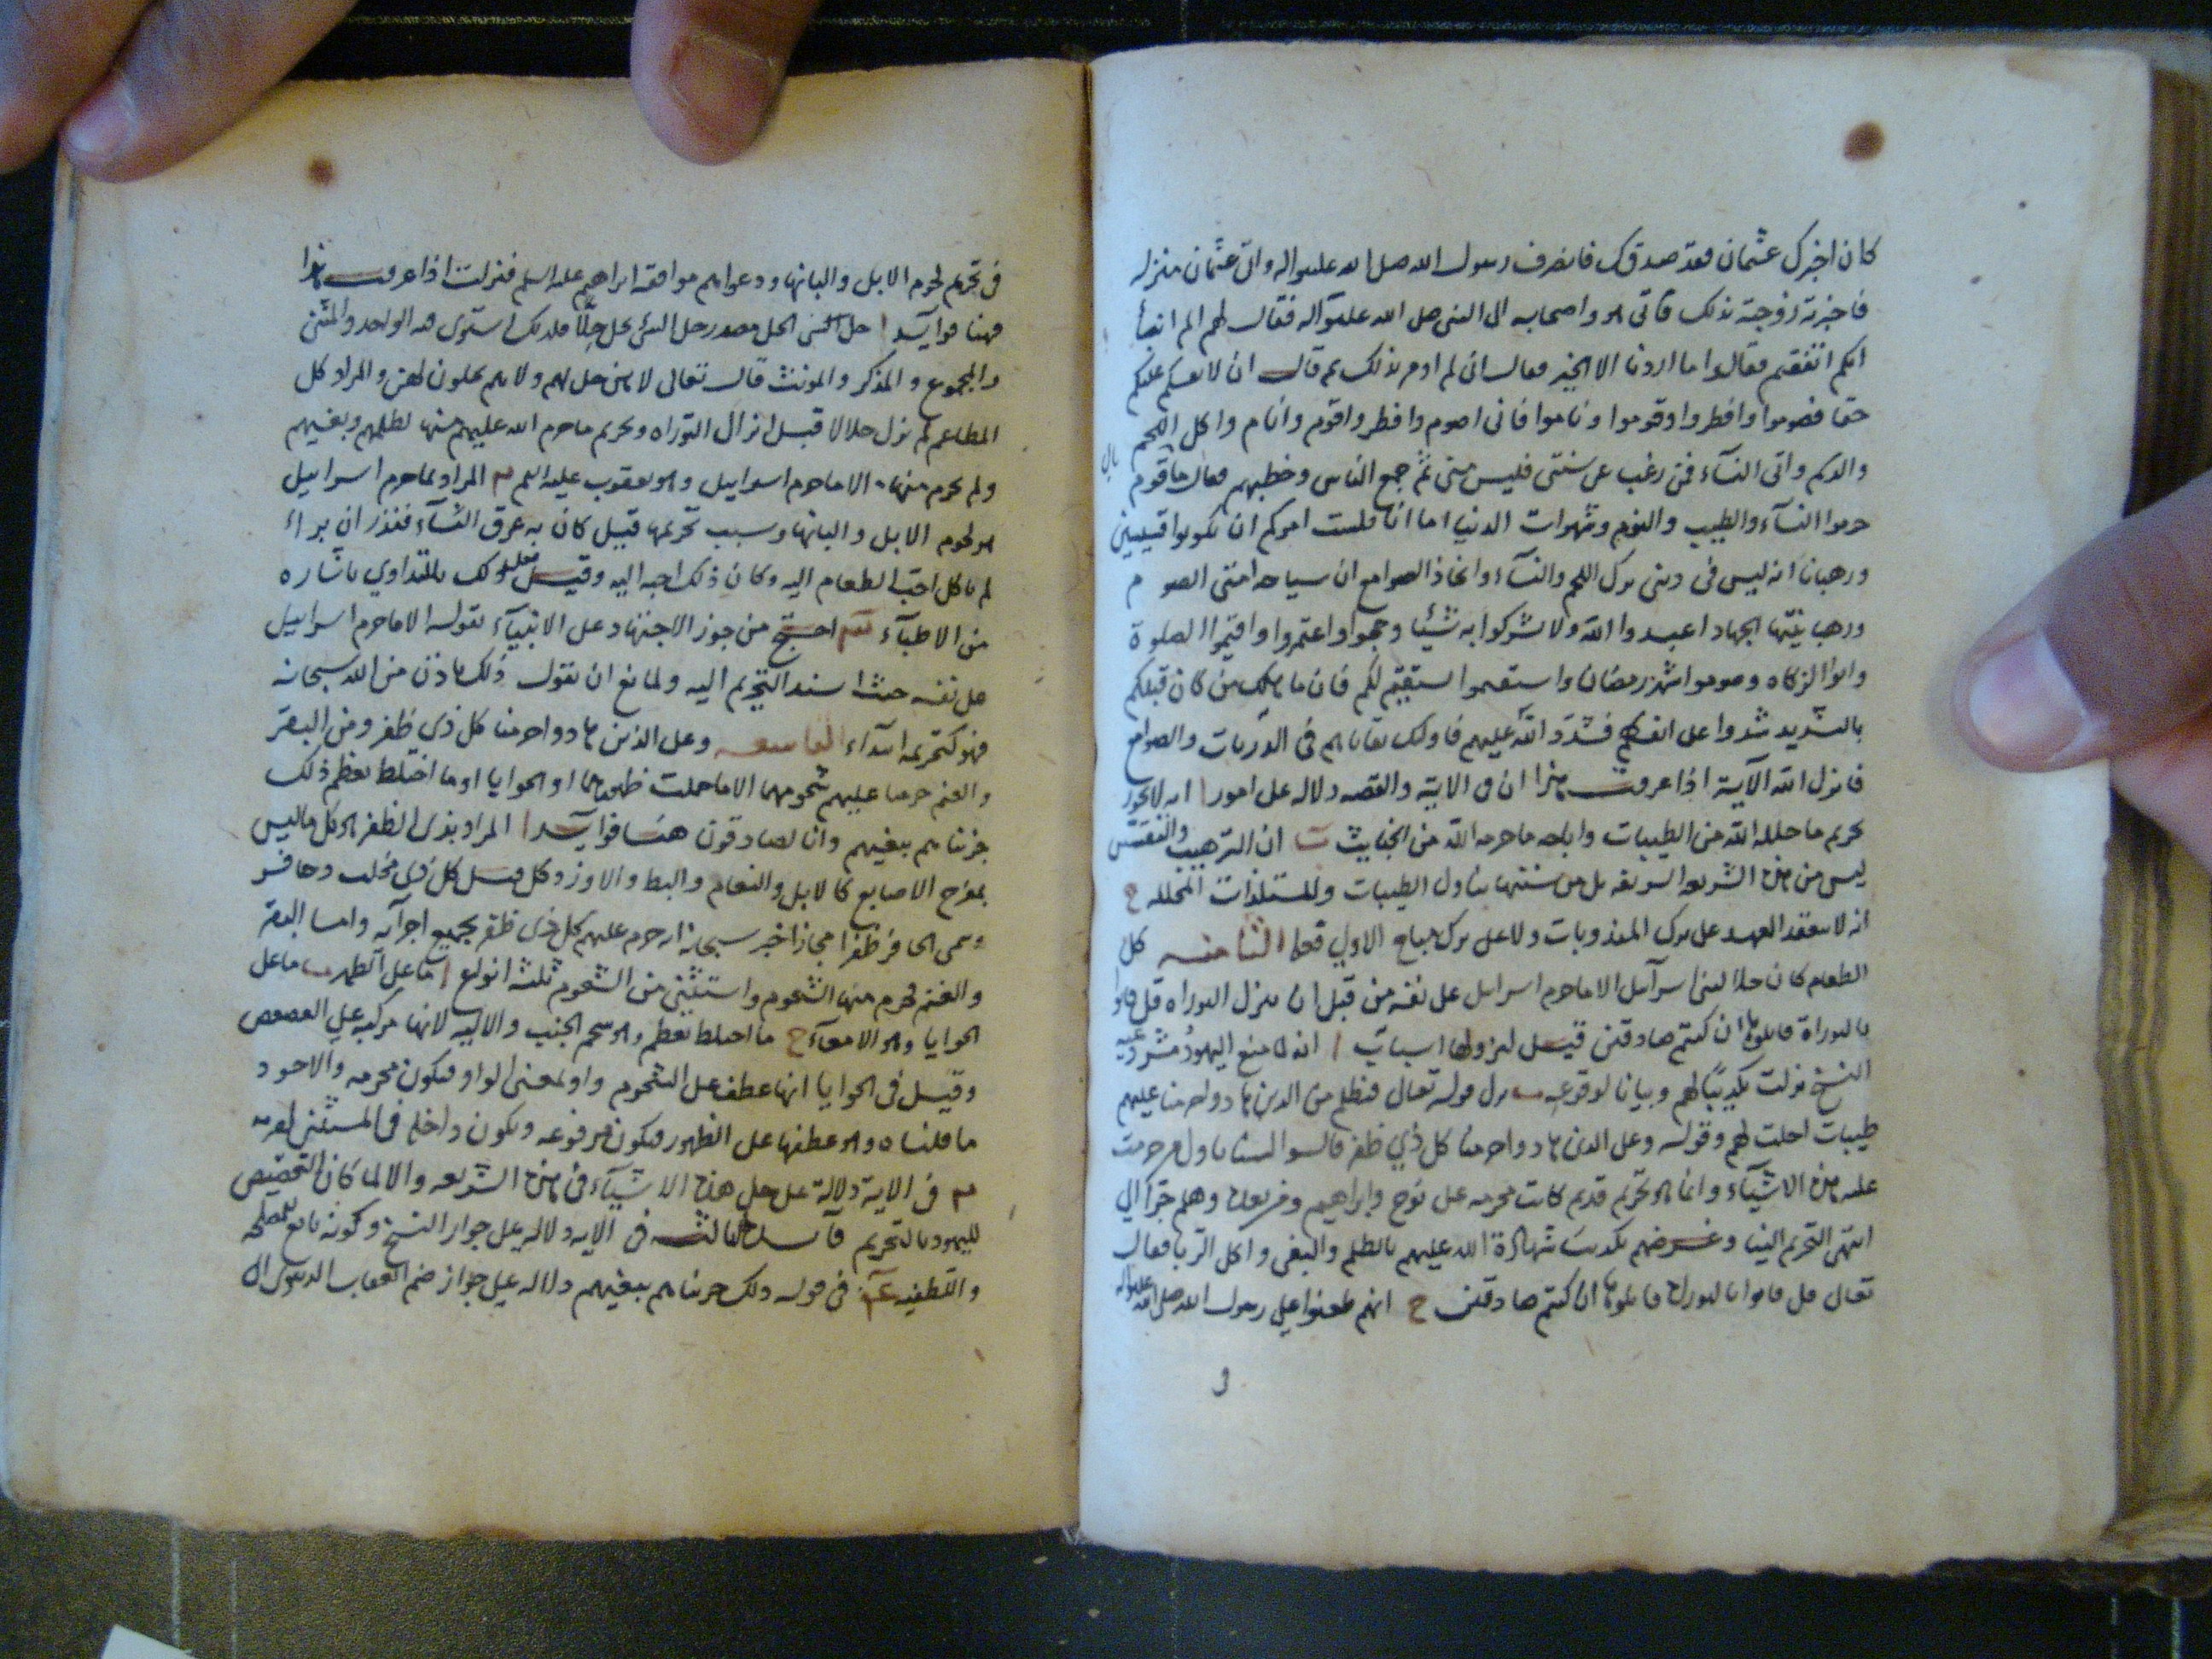 كان اخبرك عثمان فقد صدقك فانصرف رسول الله صلى الله عليه واله واتى عثمان منزله
فاخبرته زوجته بذلك فاتى هو واصحابه الى النبى صلى الله عليه وآله فقال لهم الم انبأ
انكم اتفقتم فقالوا ما اردنا الا الخير فقال انى لم اومر بذلك ثم قال ان لانفسكم عليكم
حقا فصوموا وافطروا وقوموا وناموا فانى اصوم وافطر واقوم وانام واكل اللحم
والدسم واتى النسآء فمن رغب عن سنتى فليس منى ثم جمع الناس وخطبهم فقال ما بال اقوم
حرموا النسآء والطيب والنوم وشهوات الدنيا اما انا فلست امركم ان تكونوا قسيسين
ورهبانا انه ليس فى دينى ترك اللحم والنسآء واتخاذ الصوامع ان سياحه امتى الصوم
ورهبانيتها الجهاد اعبدوا الله ولا تشركوا به شيئا وحجوا واعتمروا واقيموا الصلوة
واتوا الزكاه وصوموا شهر رمضان واستقيموا يستقيم لكم فان ما هلك من كان قبلكم
بالتشديد شددوا على انفسهم فشدد الله عليهم فاولئك بقاياهم فى الديرات والصوامع
فانزل الله الآية اذا عرفت هذا ان فى الاية والقصه دلاله على امور ا انه لا يجوز
تحريم ما حلله الله من الطيبات واباحه ما حرمه الله من الخبايث ب ان الترهيب والتقشف
ليس من هذه الشريعه الشريفه بل من سننها تناول الطيبات والمستلذات المحلله ج
انه لا ينعقد العهد على ترك المندوبات ولا على ترك مباح الاولي فعله الثامنه كل
الطعام كان حلا لبنى اسرآئيل الا ما حرم اسرايل على نفسه من قبل ان تنزل التوراه قل فاتوا
بالتوراة فاتلوها ان كنتم صادقين قيل لنزولها اسباب ا انه لما منع اليهود شرعيه
النسخ نزلت تكذيبا لهم وبيانا لوقوعه ب نزل قوله تعالى فبظلم من الذين هادوا حرمنا عليهم
طيبات احلت لهم وقوله وعلى الذين هادوا حرمنا كل ذي ظفر قالوا لسنا باول من حرمت
عليه هذه الاشيآء وانما هو تحريم قديم كانت محرمه على نوح وابراهيم ومن بعده وهلم جرا الي
انتهى التحريم الينا وغرضهم تكذيب شهادة الله عليهم بالظلم والبغى واكل الربا فقال
تعالى قل فاتوا بالتوراة فاتلوها ان كنتم صادقين ج انهم طعنوا علي رسول الله صلى الله عليه واله
فى
فى تحريم لحوم الابل والبانها ودعواهم موافقه ابراهيم عليه السلم فنزلت اذا عرفت هذا
فهنا فوآيد ا حل الشى الحل مصدر حل الشى يحل حلا فلذلك استوى فيه الواحد والمثنى
والمجموع والمذكر والمونث قال تعالى لا هن حل لهم ولا هم يحلون لهن والمراد كل
المطاعم لم تزل حلالا قبل انزال التوراه وتحريم ما حرم الله عليهم منها لظلمهم وبغيهم
ولم يحرم منها الا ما حرم اسرايل وهو يعقوب عليه السلم ب المراد بما حرم اسرايل
هو لحوم الابل والبانها وسبب تحريمها قيل كان به عرق النسآء فنذر ان براء
لم ياكل احب الطعام اليه وكان ذلك احبه اليه وقيل فعل ذلك للتداوي باشاره
من الاطبآء ج احتج من جوز الاجتهاد على الانبيآء بقوله الا ما حرم اسرايل
على نفسه حيث اسند التحريم اليه ولمانع ان يقول ذلك باذن من الله سبحانه
فهو كتحريمه ابتدآء التاسعه وعلى الذين هادوا حرمنا كل ذي ظفر ومن البقر
والغنم حرمنا عليهم شحومهما الا ما حملت ظهورهما او الحوايا او ما اختلط بعظم ذلك
جزيناهم ببغيهم وانا لصادقون هنا فوآيد ا المراد بذى الظفر هو كل ما ليس
بمفرج الاصابع كالابل والنعام والبط والاوز وكل قيل كل ذى مخلب وحافر
وسمى الحافر ظفرا مجازا اخبر سبحانه انه حرم عليهم كل ذى ظفر بجميع اجزآئه واما البقر
والغنم فحرم منها الشحوم واستثنى من الشحوم ثلثه انواع ا ما على الظهر ب ما على
الحوايا وهو الامعآء ج ما اختلط بعظم وهو شحم الجنب والاليه لانها مركبه علي العصعص
وقيل فى الحوايا انها عطف على الشحوم واو بمعنى الواو فيكون محرمه والاجود
ما قلناه وهو عطفها على الظهور فيكون مرفوعه ويكون داخله فى المستثنى لقربه
ب فى الاية دلالة على حل هذه الاشيآء فى هذه الشريعه والا لما كان لتخصيص
لليهود بالتحريم فآئده الثالثه فى الايه دلاله على جواز النسخ وكونه تابع للمصلحه
واللطفيه فى قوله ذلك جزيناهم ببغيهم دلاله علي جواز ضم العقاب الدنيوى الى